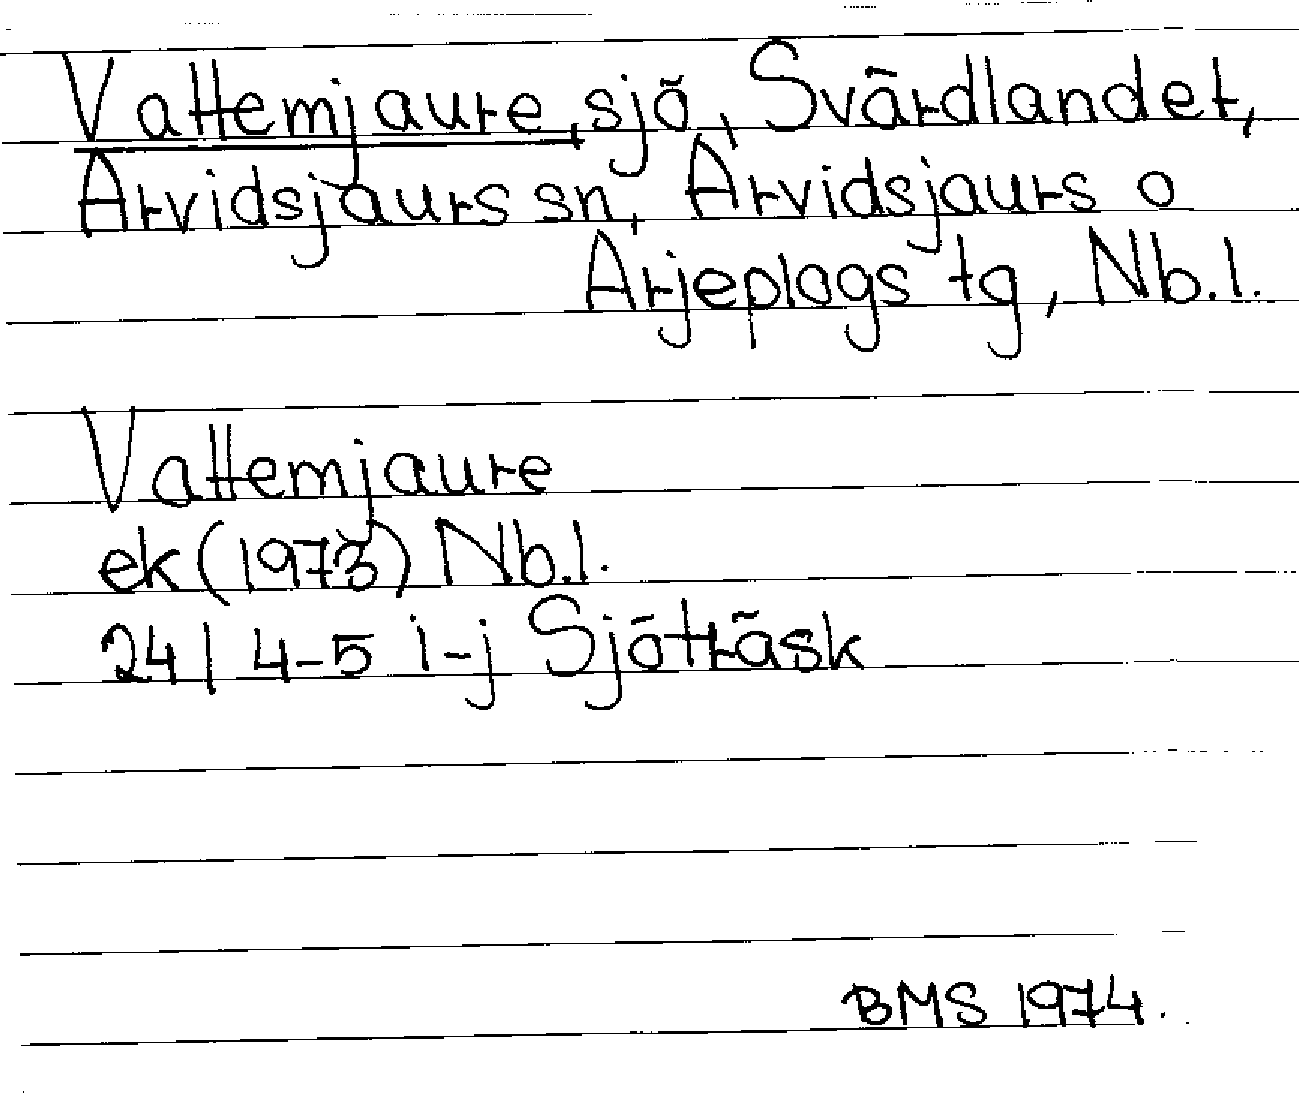 Vattemjaure, sjö, Svärdlandet,
Arvidsjaurs sn, Arvidsjaurs o
Arjeplogs tg, Nb.l.
Vattemjaure
ek (1973) Nb.l.
24I 4-5 i-j Sjöträsk
BMS 1974.